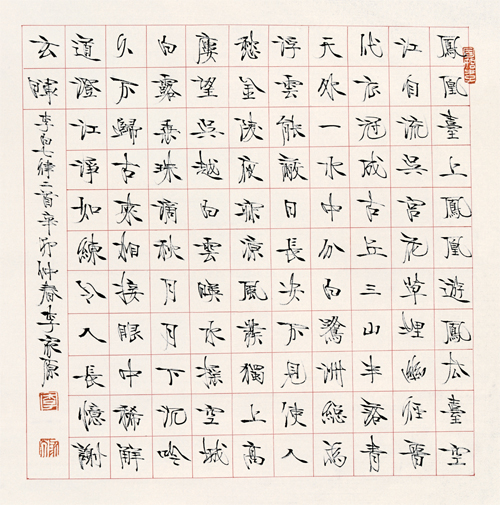 鳳凰臺上鳳凰遊鳳去臺空
江自流吳宮花草埋幽徑晉
代衣冠成古丘三山半落青
天外一水中分白鷺洲總為
浮雲能蔽日長安不見使人
愁金陵夜寂涼風發獨上高
樓望吳越白雲映水搖空城
白露垂珠滴秋月月下沉吟
久不歸古來相接眼中稀解
道澄江淨如練令人長憶謝
玄暉 李白七律二首辛卯仲春李家原